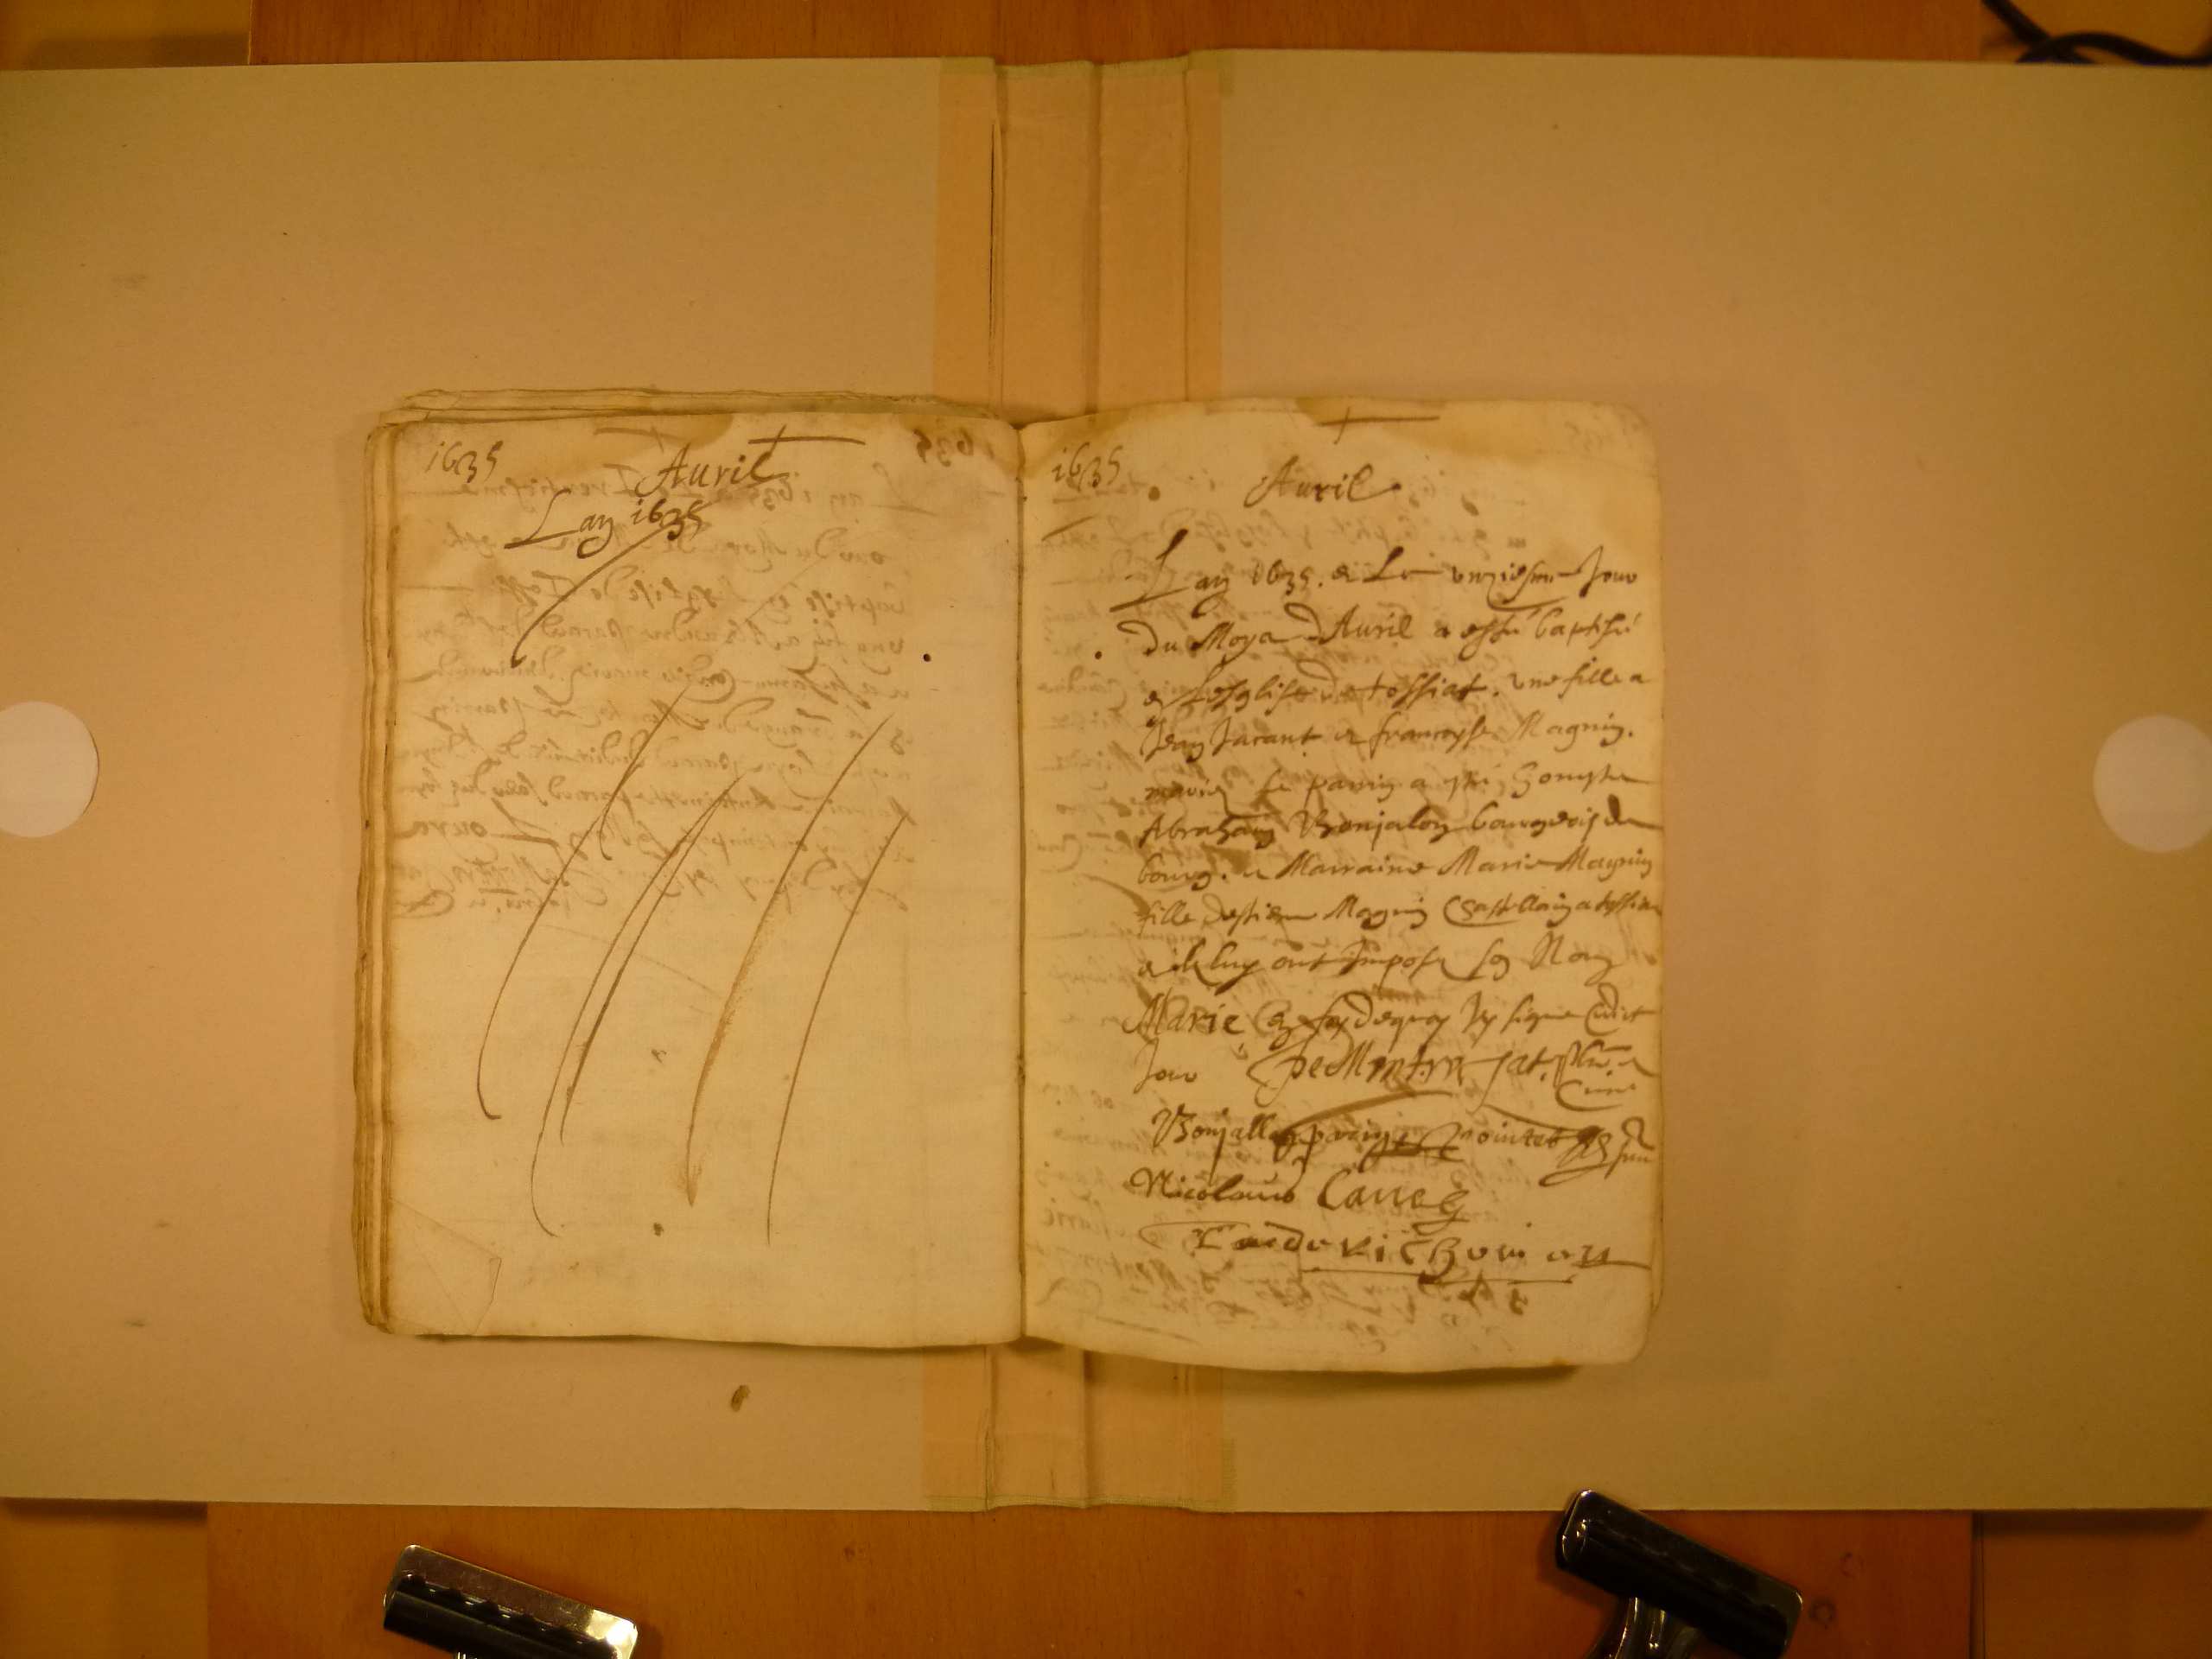 1635
Auril
Lan 1635
1635
Auril
Lan 1635. & Le unziesme Jour
Du Moys dAuril a esté baptisé
en Lesglise de tossiat. une fille a
Jean Jacant et francoyse Magnin.
mariez Le parrin a esté honeste
Abraham Bonjalon bourgeois de
bourg. et Marraine Marie Magnin
fille destiene Magnin Chastellain a tossia
et ils luy ont Impose son Nom
Marie En foy dequoy Jy signe Ledict
Jour
Bonjallon parrin
Nicolaus